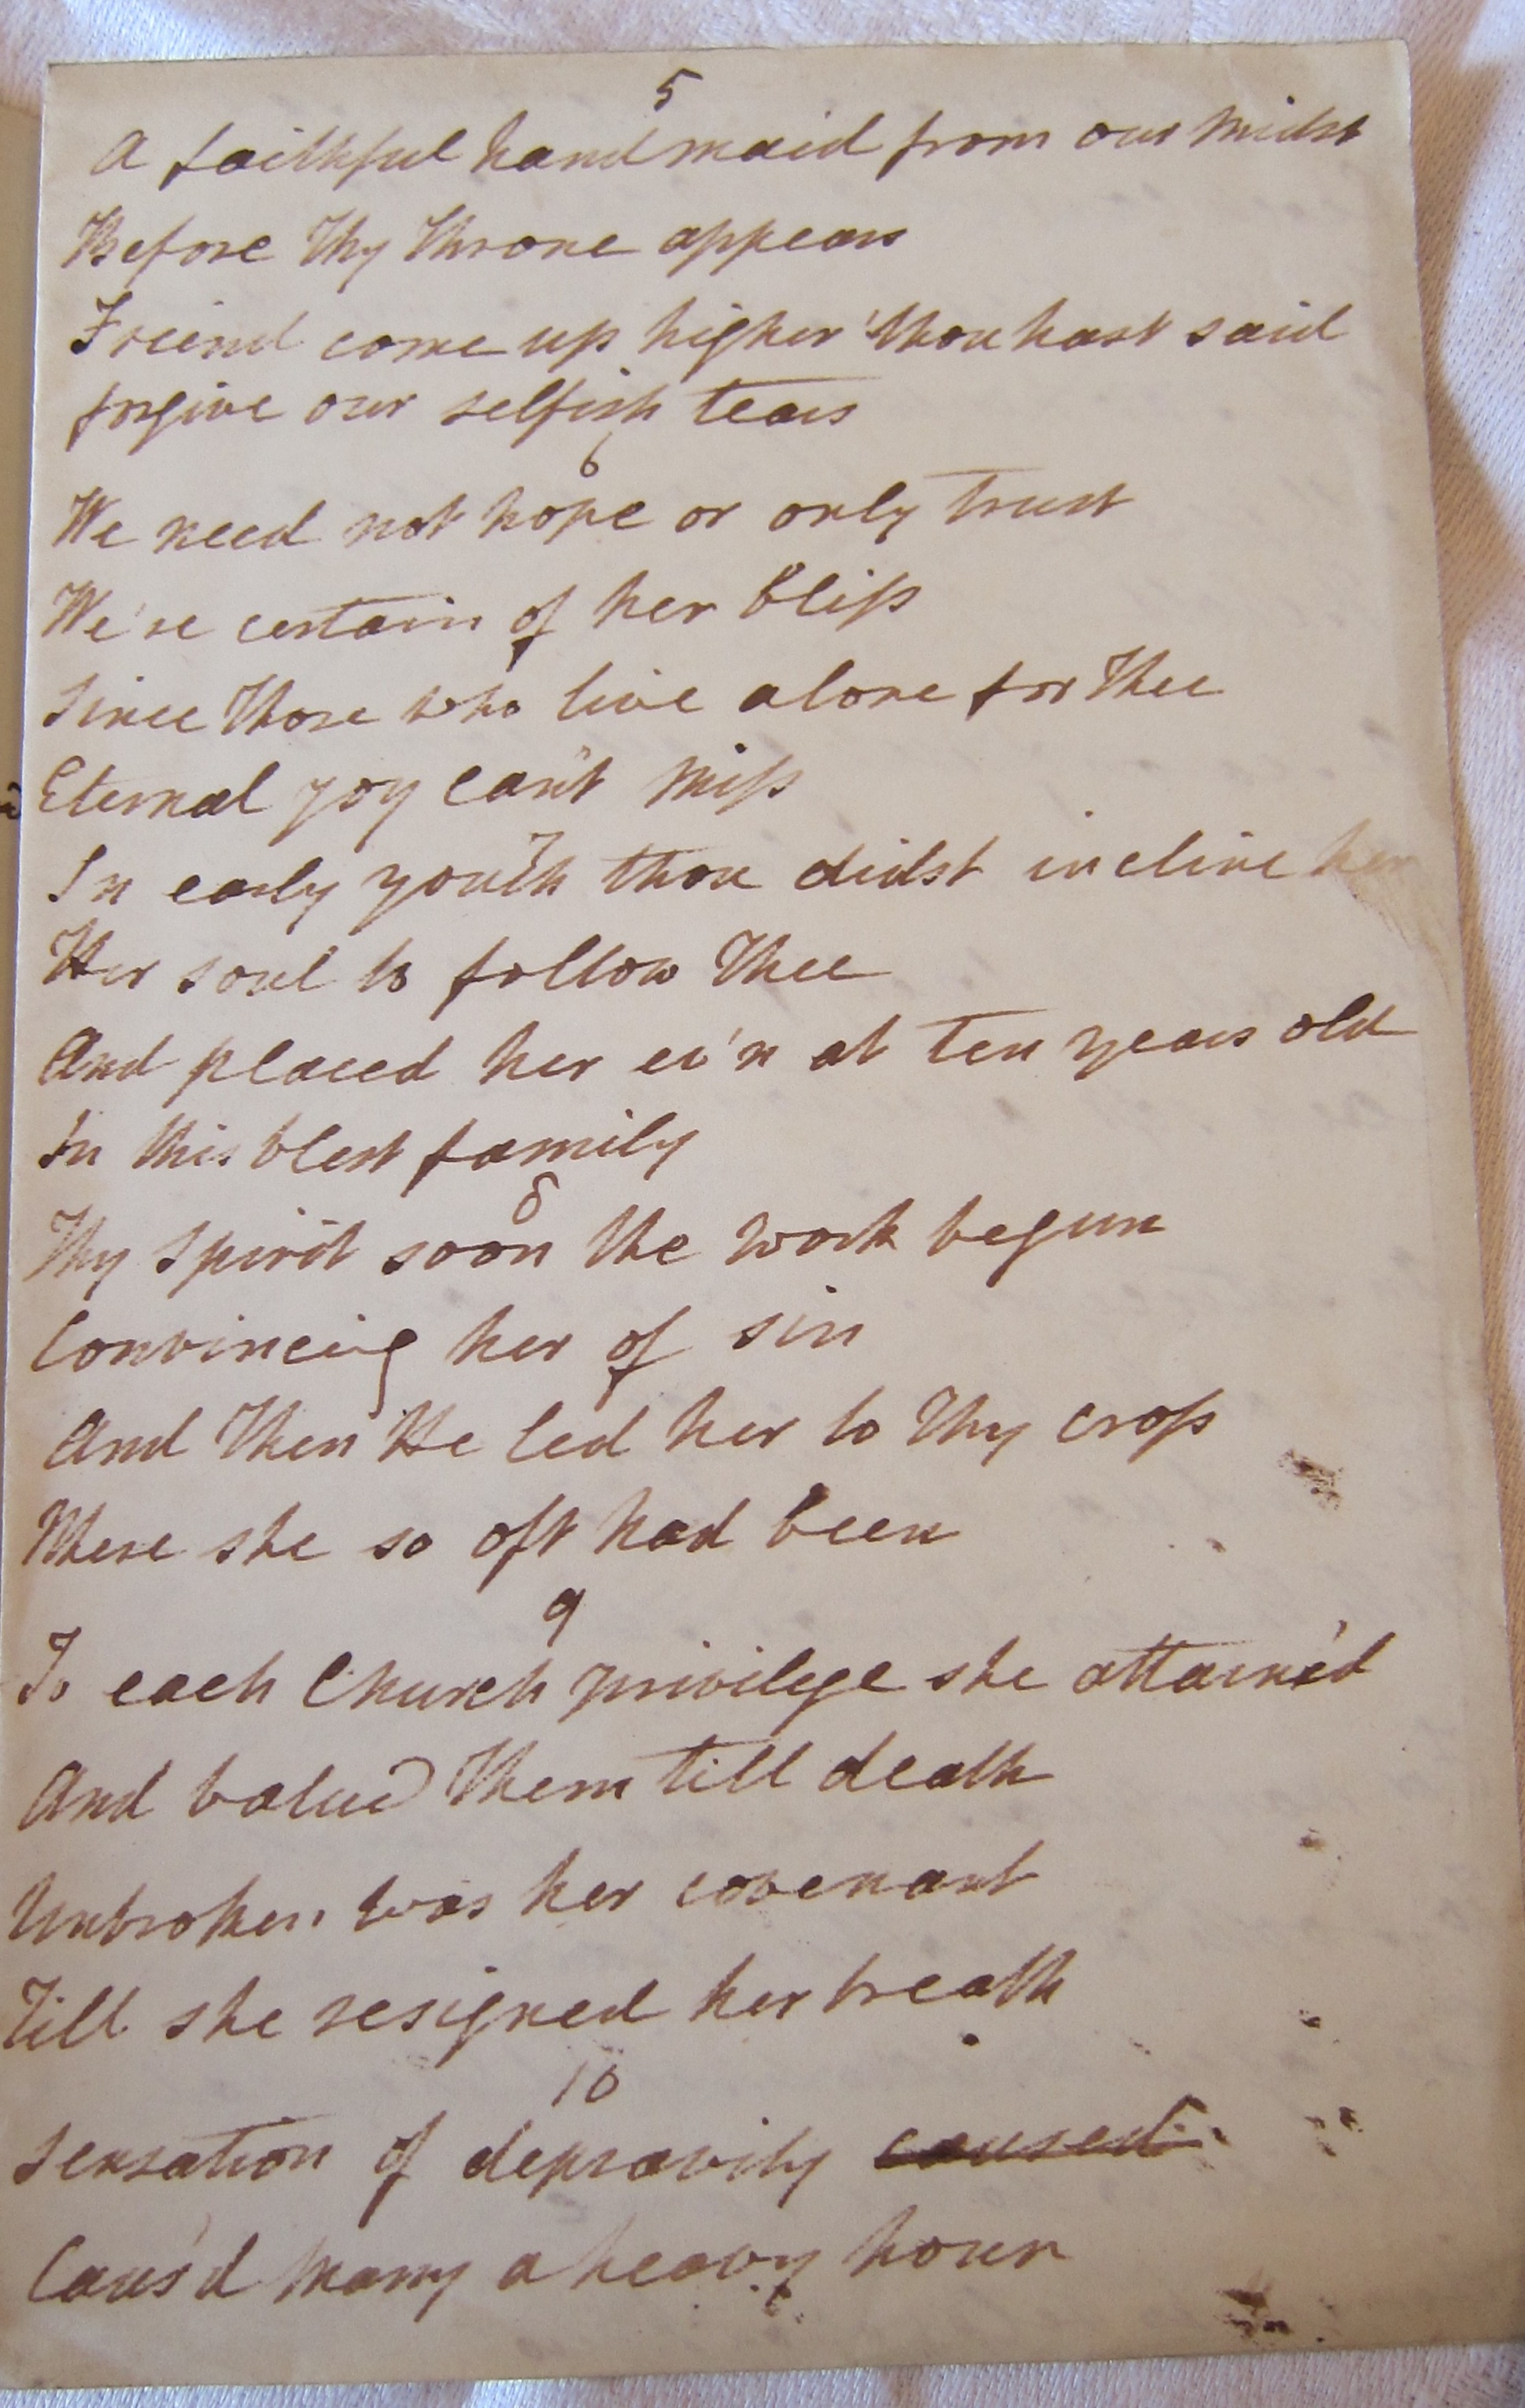 5
A faithful handmaid from our midst
Before Thy Throne appears
Freind come up higher 'thou hast said
forgive our selfish tears
6
We need not hope or only trust
We're certain of her bliss
Since those who live alone for Thee
Eternal joy can't miss
7
In early youth thou didst incline her
Her soul to follow Thee
And placed her ev'n at ten years old
In this blest family
8
Thy Spirit soon the work begun
Convincing her of sin
And then He led her to Thy cross
Where she so oft had been
9
To each Church privilege she attain'd
And valued them till death
Unbroken was her covenant
Till she resigned her breath
10
Sensation of depravity caused
Caus'd many a heavy hour